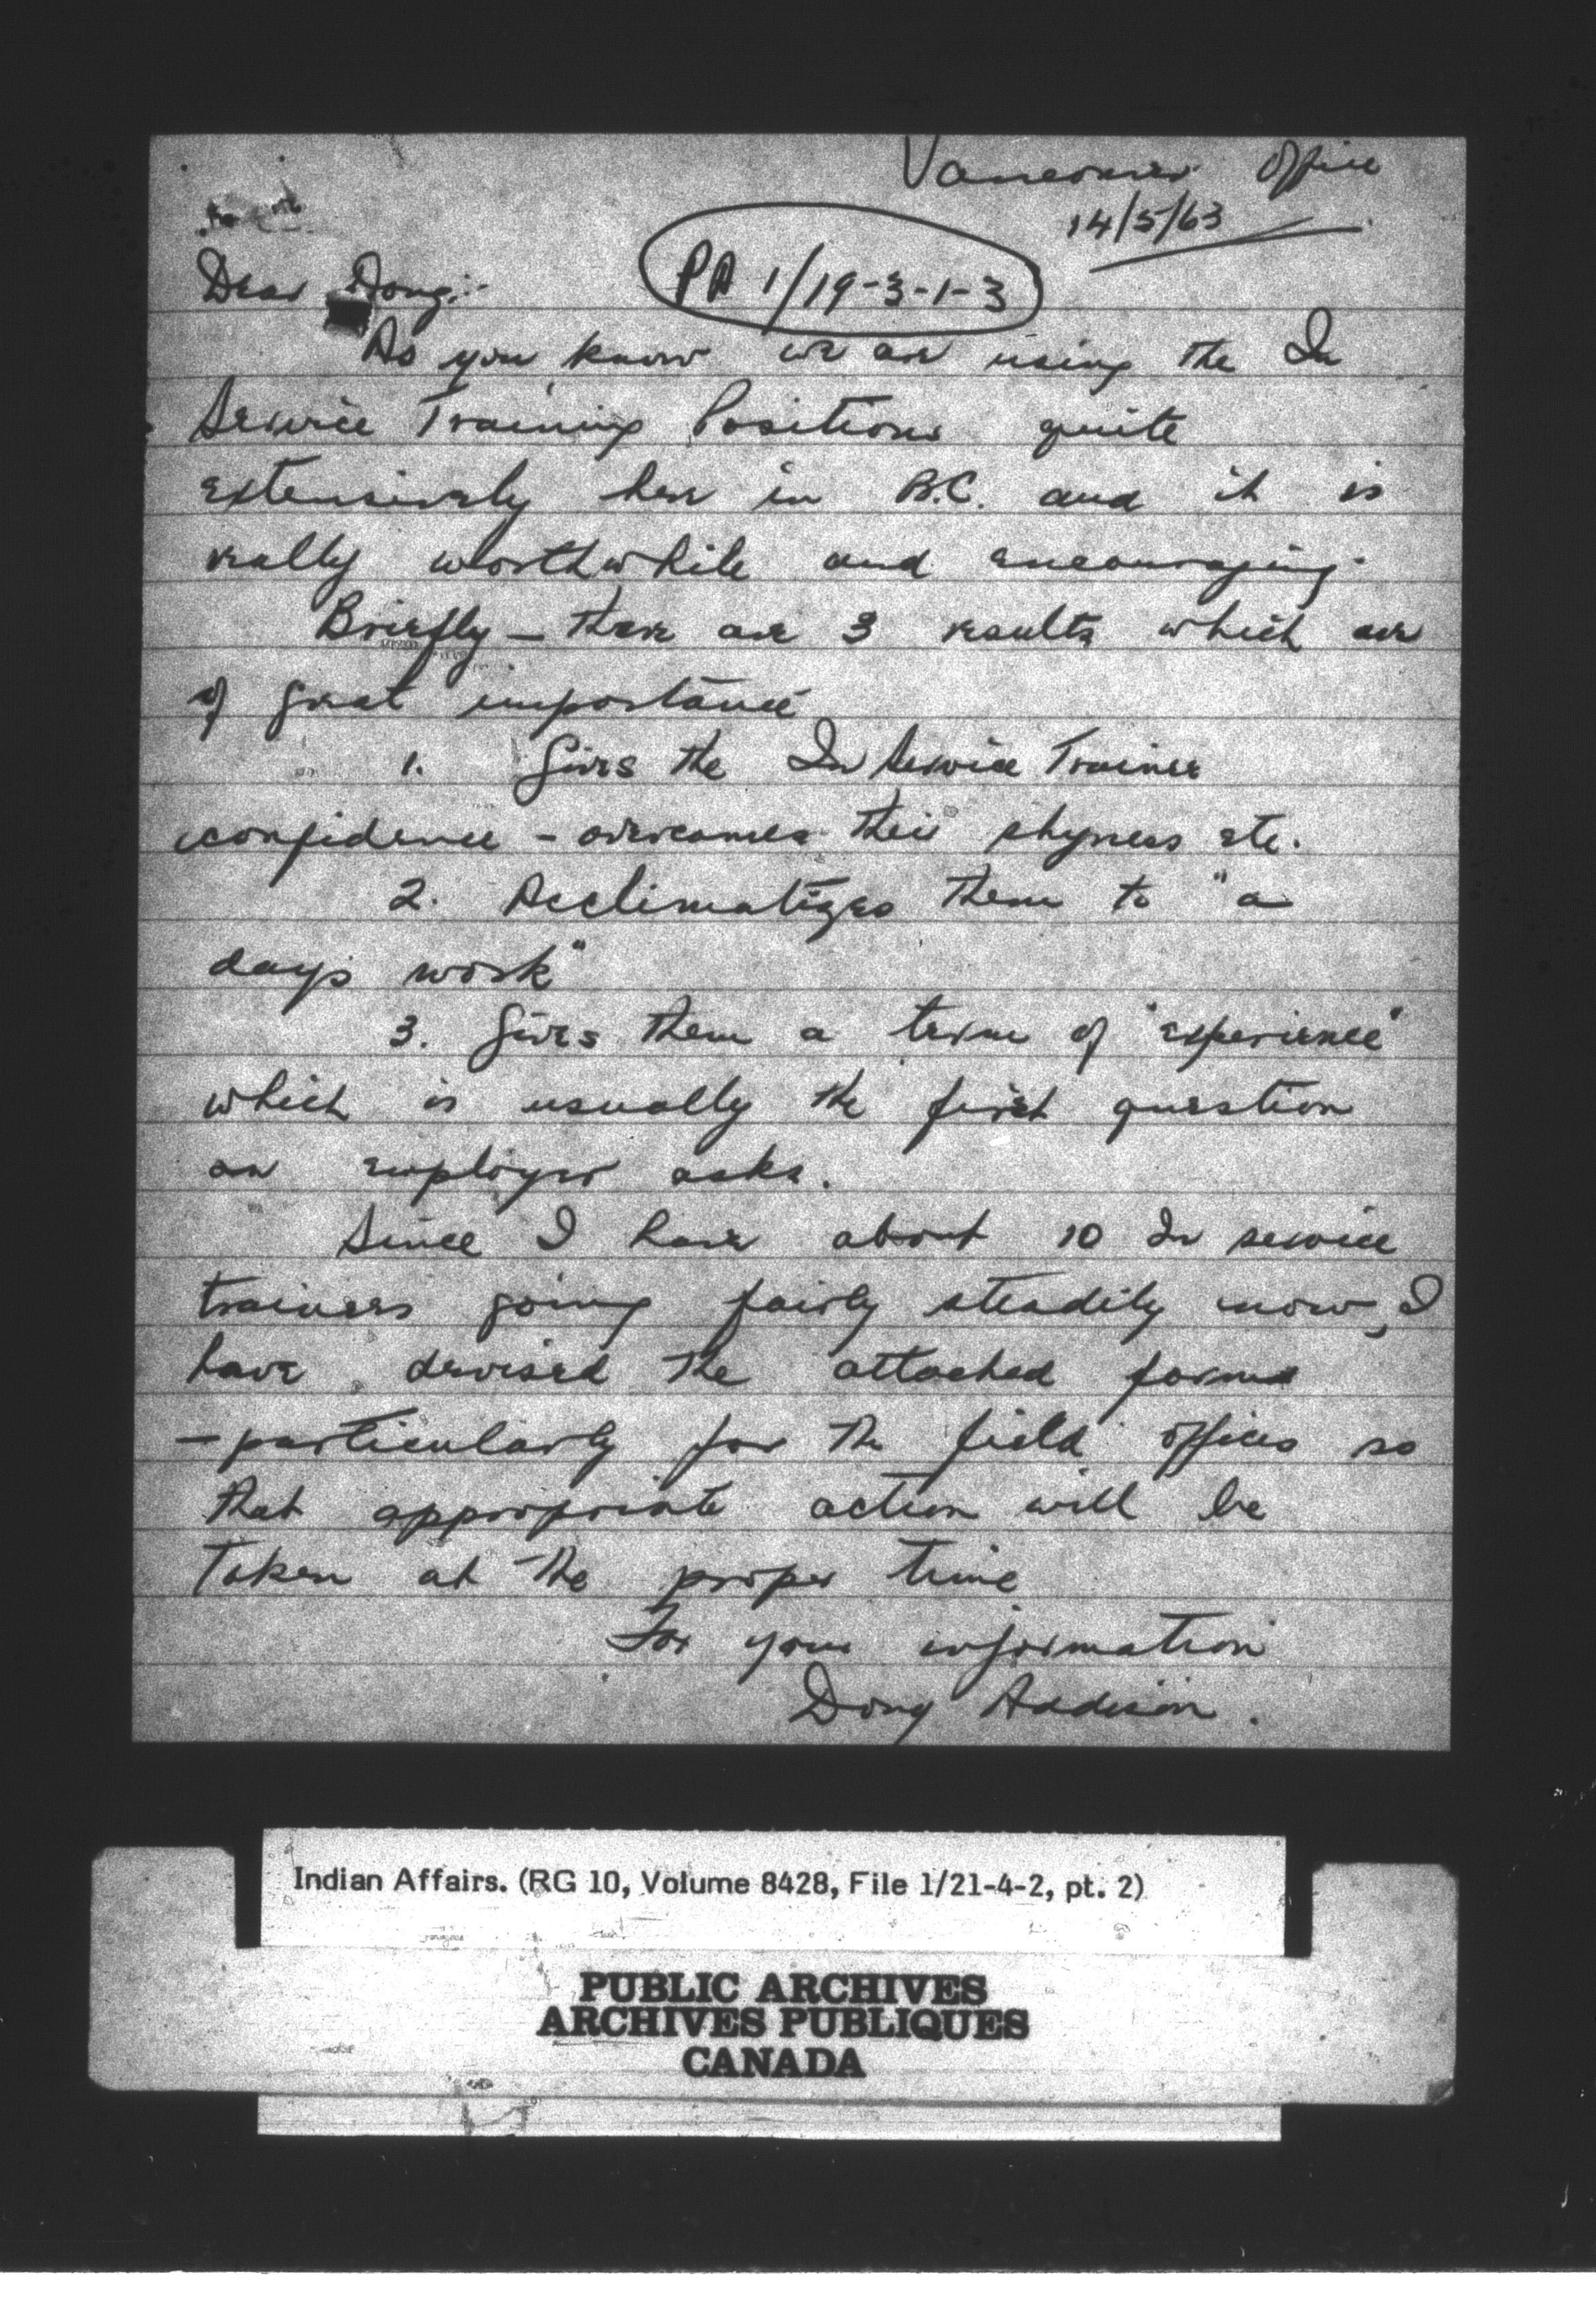 Vancouver Office
14/5/63
PA 1/19-3-1-3
Dear Doug:-
As you know we are using the In
Service Training Positions quite
extensively here in B.C. and it is
really worthwhile and encouraging.
Briefly - there are 3 results which are
of great importance
1. Gives the In Service Trainee
confidence - overcomes their shyness etc.
2. Acclimatizes them to "a
days work"
3. Gives them a term of "experience"
which is usually the first question
an employer asks.
Since I have about 10 In service
trainees going fairly steadily now, I
have devised the attached forms
- particularly for the field offices so
that appropriate action will be
taken at the proper time
For your information
Doug Addison.
Indian Affairs. (RG 10, Volume 8428, File 1/21-4-2, pt. 2)
PUBLIC ARCHIVES
ARCHIVES PUBLIQUES
CANADA